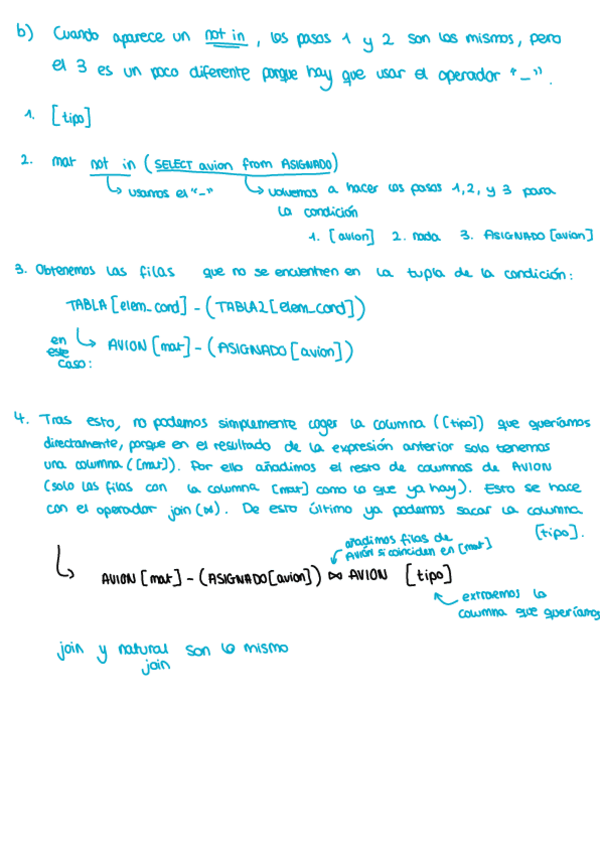 b) Cuando aparece un not in, los pasos 1 y 2 son los mismos, pero
el 3 es un poco diferente porque hay que usar el operador "_".
1. [tipo]
2. mat not in (SELECT avion from ASIGNADO)
usamos el "-"
volvemos a hacer los pasos 1, 2, y 3 para
la condición
1. [avion] 2. nada 3. ASIGNADO [avion]
3. Obtenemos las filas que no se encuentren en la tupla de la condición:
TABLA [elem_cond] - (TABLA2 [elem_cond])
en
este
caso:
AVION [mat] - (ASIGNADO [avion])
4. Tras esto, no podemos simplemente coger la columna ([tipo]) que queríamos
directamente, porque en el resultado de la expresión anterior solo tenemos
una columna ([mat]). Por ello añadimos el resto de columnas de AVION
(solo las filas con la columna [mat] como lo que ya hay). Esto se hace
con el operador join (⋈). De esto último ya podemos sacar la columna
[tipo].
añadimos filas de
AVION si coinciden en [mat]
AVION [mat] - (ASIGNADO [avion]) ⋈ AVION [tipo]
extraemos la
columna que queríamos
join y natural son lo mismo
join